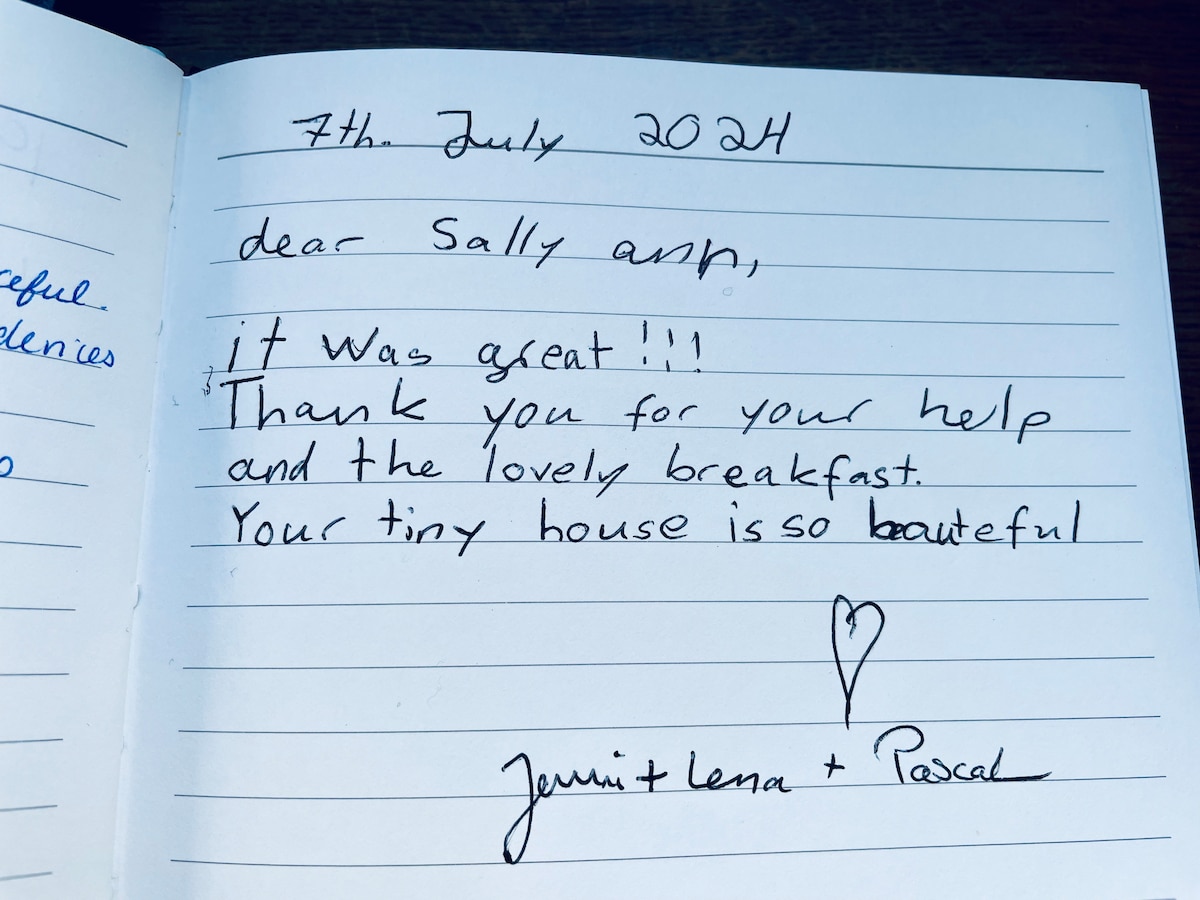 7th. July 2024
dear Sally ann,
it was great!!!
Thank you for your help
and the lovely breakfast.
Your tiny house is so beauteful
Jenni + Lena + Pascal